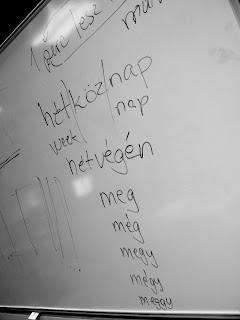 1 perc lesz
hét/köz/nap
week nap
hétvégén
meg
még
megy
mégy
meggy